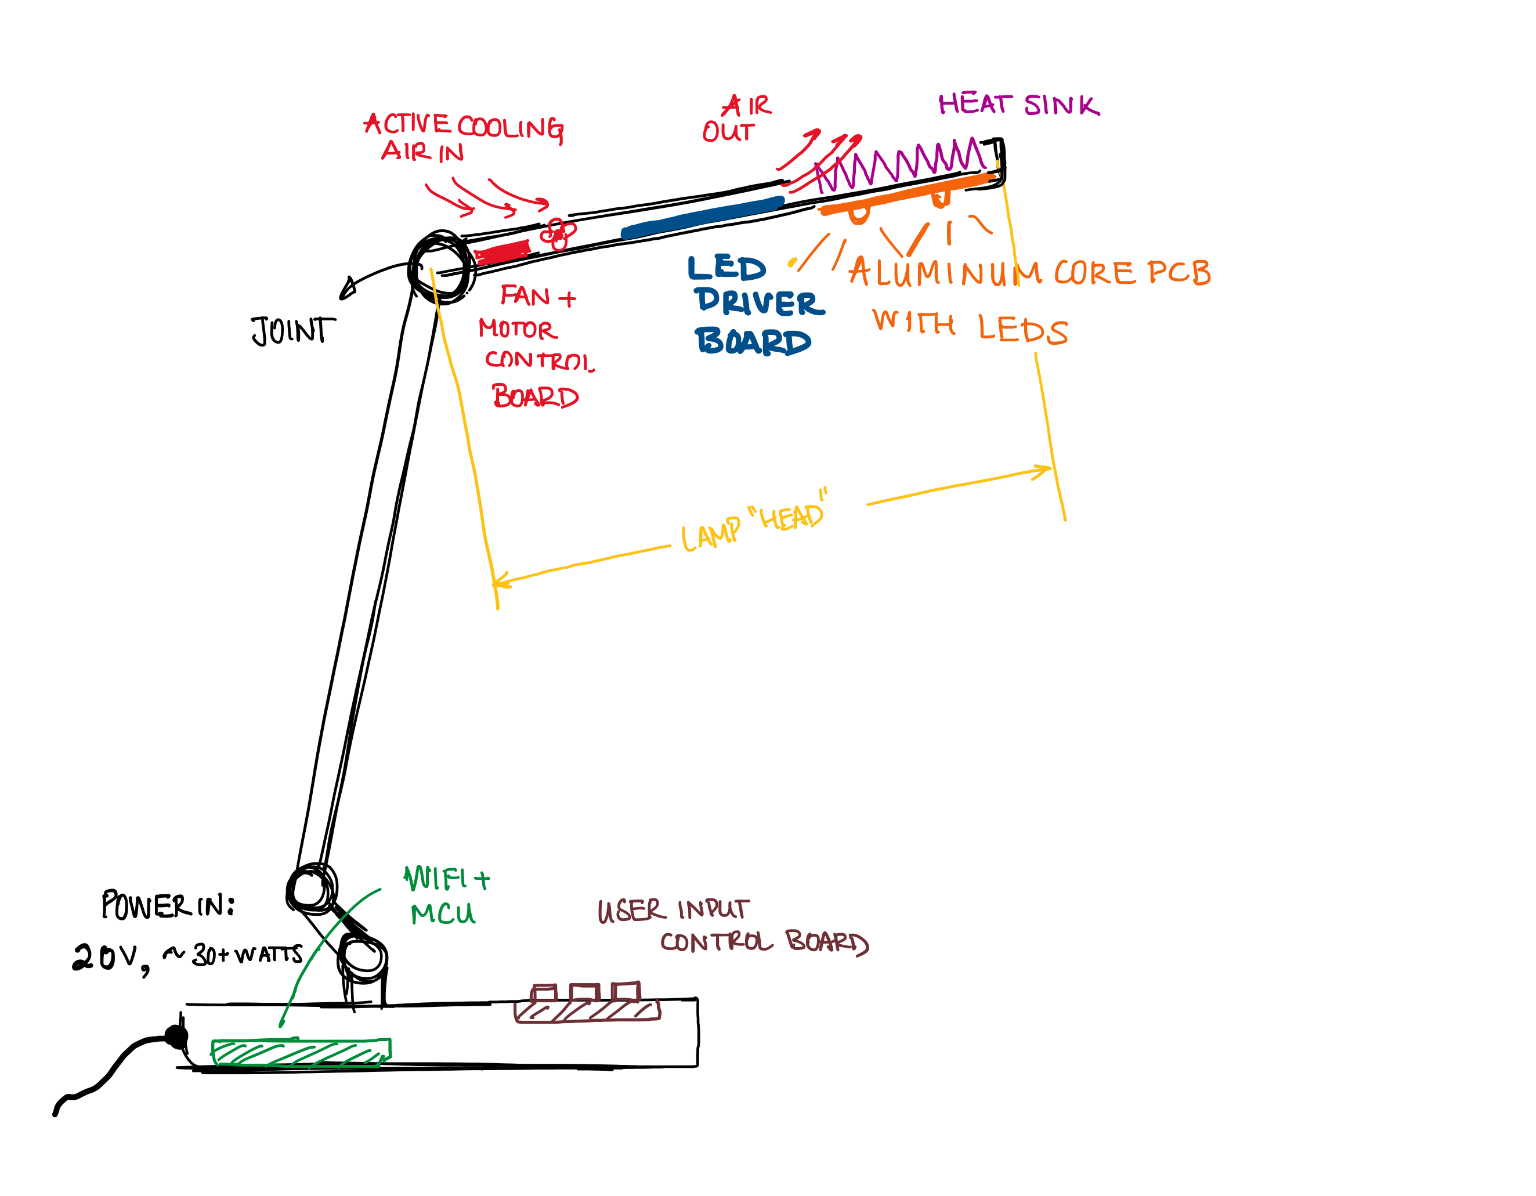 ACTIVE COOLING
AIR IN
AIR
OUT
HEAT SINK
JOINT
FAN +
MOTOR
CONTROL
BOARD
LED
DRIVER
BOARD
ALUMINUM CORE PCB
WITH LEDS
LAMP "HEAD"
POWER IN:
20V, ~30+ WATTS
WIFI +
MCU
USER INPUT
CONTROL BOARD